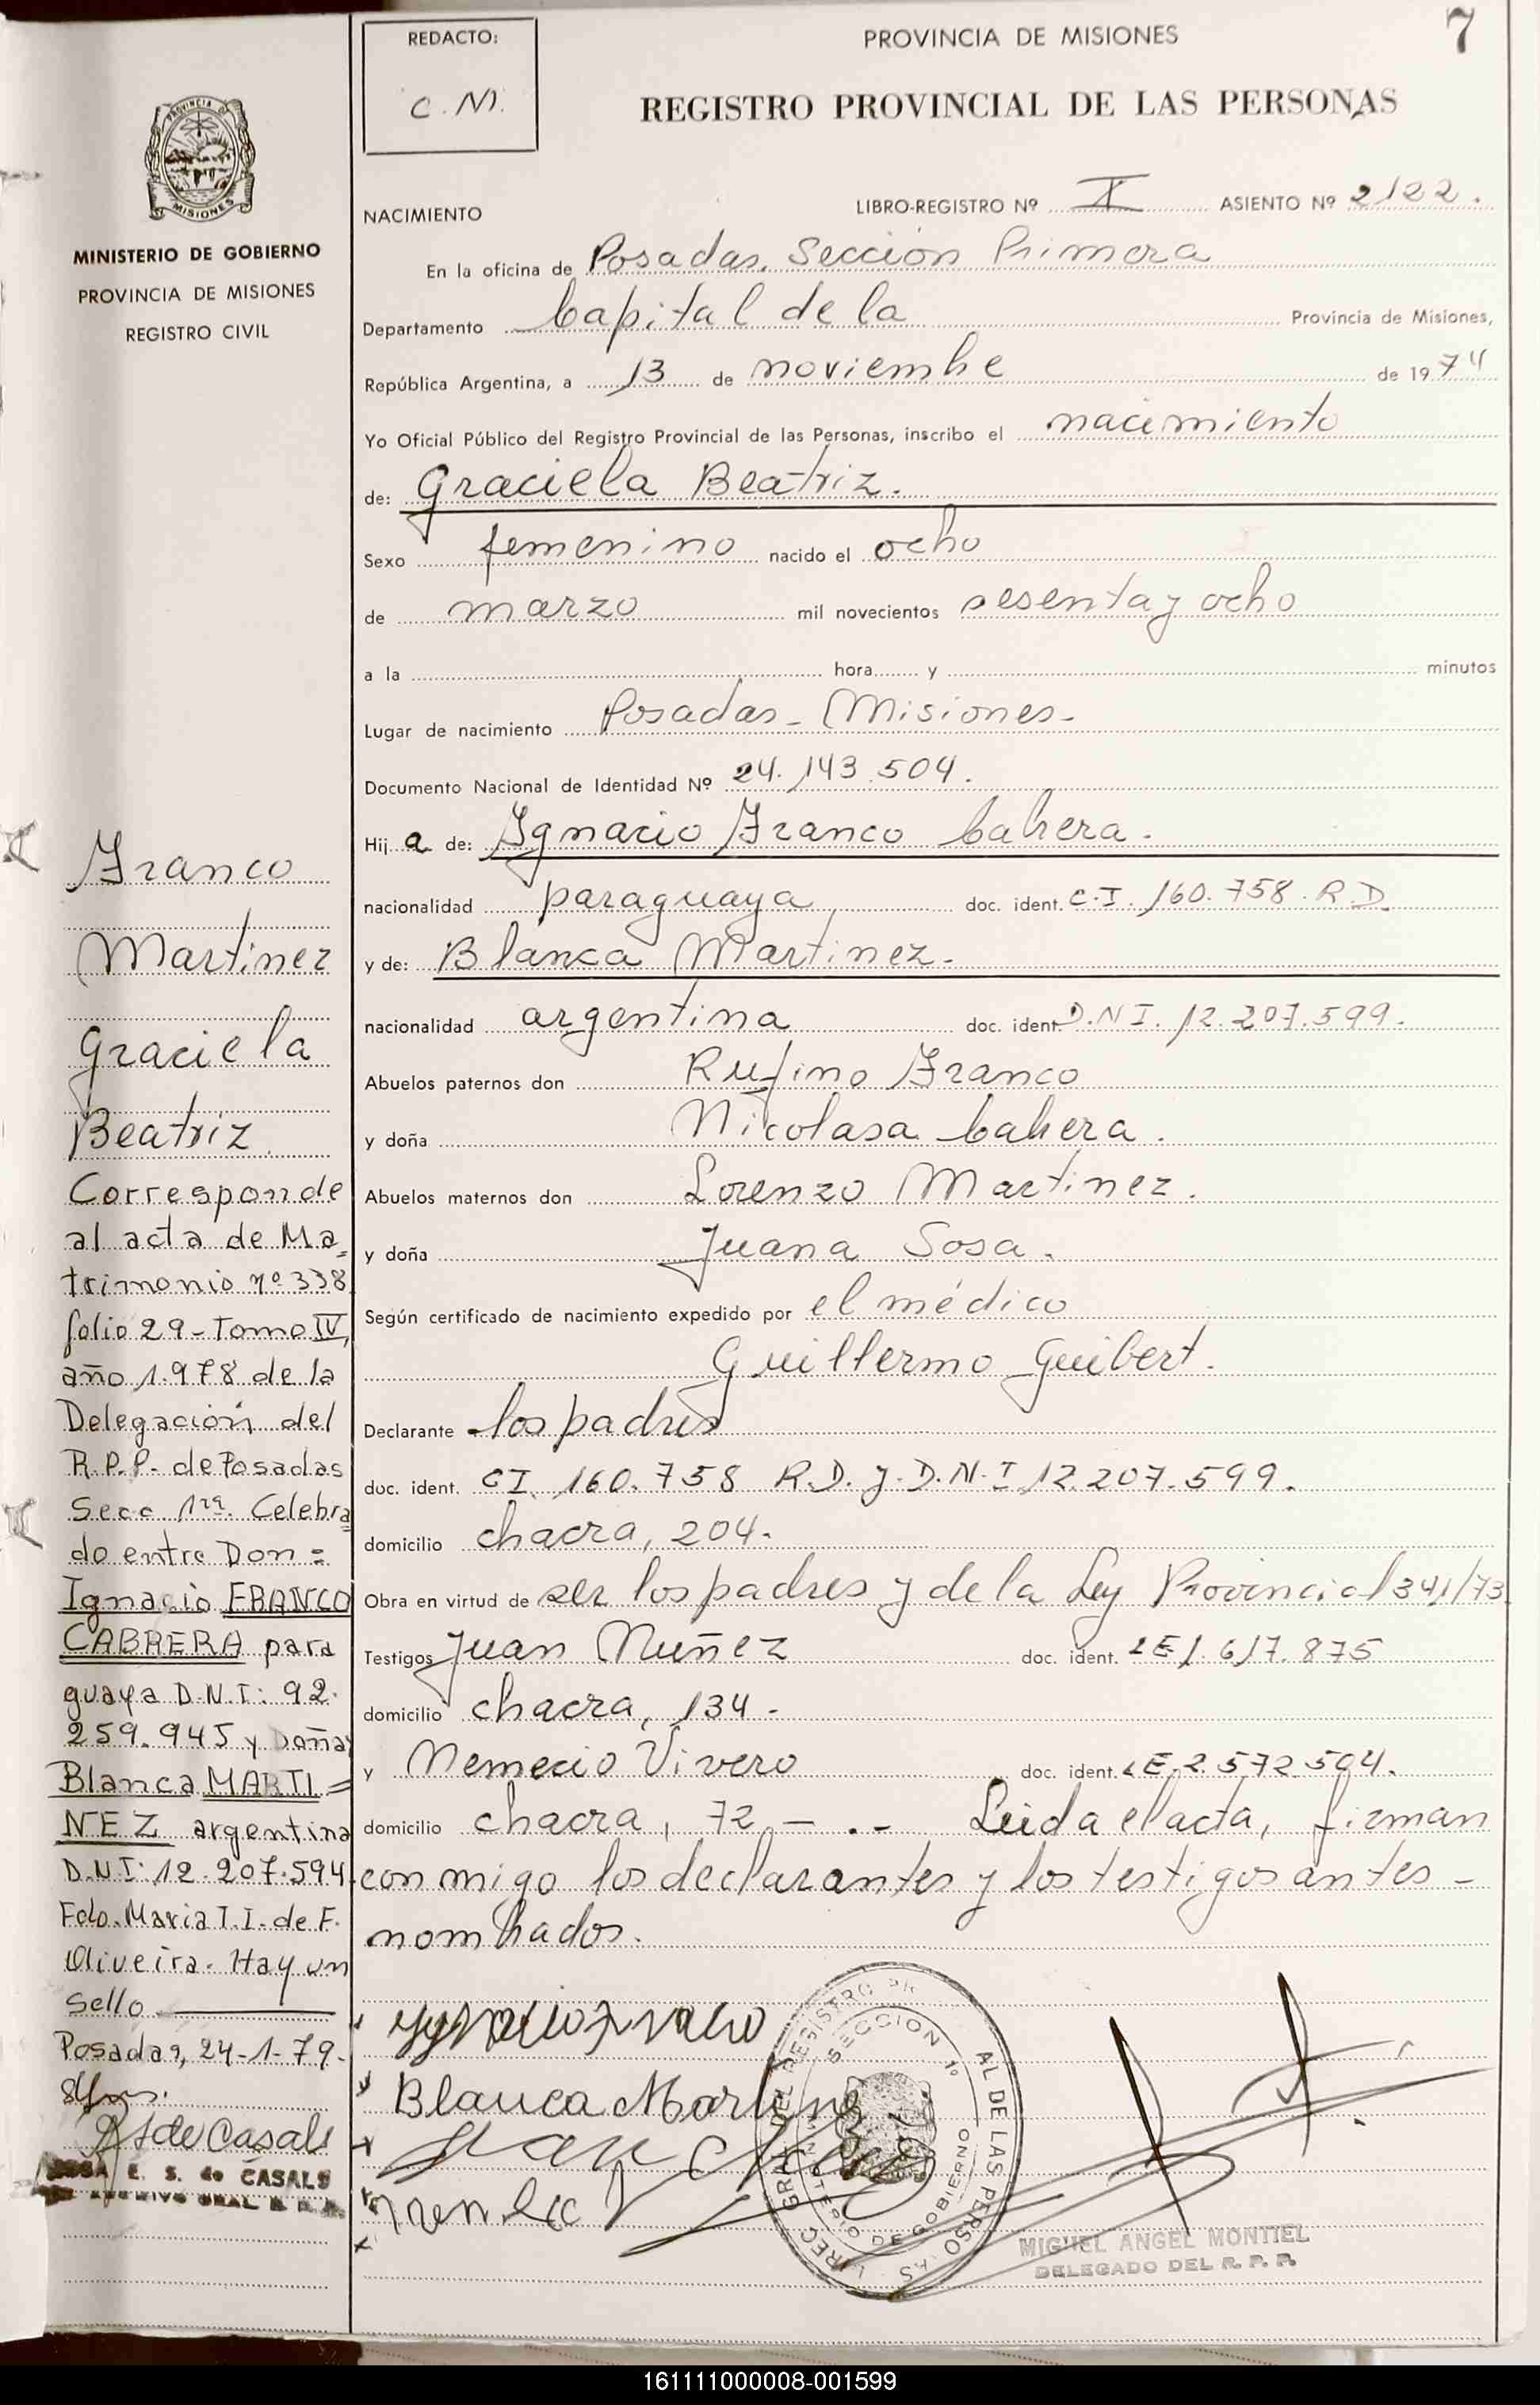 7
REDACTO:
C. M.
PROVINCIA DE MISIONES
REGISTRO PROVINCIAL DE LAS PERSONAS
PROVINCIA DE
MISIONES
MINISTERIO DE GOBIERNO
PROVINCIA DE MISIONES
REGISTRO CIVIL
NACIMIENTO
LIBRO-REGISTRO Nº X ASIENTO Nº 2122.
En la oficina de Posadas. Sección Primera
Departamento Capital de la Provincia de Misiones,
República Argentina, a 13 de noviembre de 1974
Yo Oficial Público del Registro Provincial de las Personas, inscribo el nacimiento
de: Graciela Beatriz.
Sexo femenino nacido el ocho
de marzo mil novecientos sesenta y ocho
a la hora y minutos
Lugar de nacimiento Posadas - Misiones -
Documento Nacional de Identidad Nº 24.143.504.
Hij a de: Ygnacio Franco Cabrera.
nacionalidad paraguaya doc. ident. C.I. 160.758. R.D.
y de: Blanca Martinez.
nacionalidad argentina doc. ident. D.N.I. 12.207.599.
Abuelos paternos don Rufino Franco
y doña Nicolasa Cabrera.
Abuelos maternos don Lorenzo Martinez.
y doña Juana Sosa.
Según certificado de nacimiento expedido por el médico
Guillermo Guibert.
Declarante los padres
doc. ident. CI. 160.758 R.D. y D.N.I. 12.207.599.
domicilio chacra, 204.
Obra en virtud de ser los padres y de la Ley Provincial 341/73
Testigos Juan Nuñez doc. ident. LE 1.617.875
domicilio chacra, 134 -
y Nemecio Vivero doc. ident. LE. 2.572.504.
domicilio chacra, 72 - . - Leida el acta, firman
conmigo los declarantes y los testigos antes -
nombrados.
Franco
Martinez
Graciela
Beatriz
Corresponde
al acta de Ma=
trimonio nº 338
folio 29 - Tomo IV,
año 1.978 de la
Delegación del
R.P.P. de Posadas
Secc 1ra. Celebra
do entre Don =
Ignacio FRANCO
CABRERA para
guaya D.N.I: 92.
259.945 y Doña
Blanca MARTI =
NEZ argentina
D.N.I: 12.207.594
Fdo. Maria T.I. de F.
Oliveira. Hay un
sello
Posadas, 24-1-79.
de Casals
E. S. de CASALS
Ygnacio Franco
Blanca Martinez
Juan Nuñez
SECCION 1º
MINISTERIO DE GOBIERNO
MIGUEL ANGEL MONTIEL
DELEGADO DEL R. P. P.
161111000008-001599